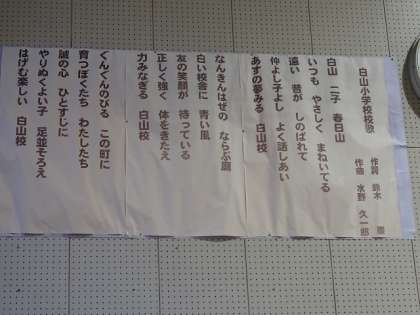 白山小学校校歌
作詞 鈴木
作曲 水野 久一郎
白山 二子 春日山
いつも やさしく まねいてる
遠い 昔が しのばれて
仲よし子よし よく話しあい
あすの夢みる 白山校
なんきんはぜの ならぶ庭
白い校舎に 青い風
友の笑顔が 待っている
正しく強く 体をきたえ
力みなぎる 白山校
ぐんぐんのびる この町に
育つぼくたち わたしたち
誠の心 ひとすじに
やりぬくよい子 足並そろえ
はげむ楽しい 白山校